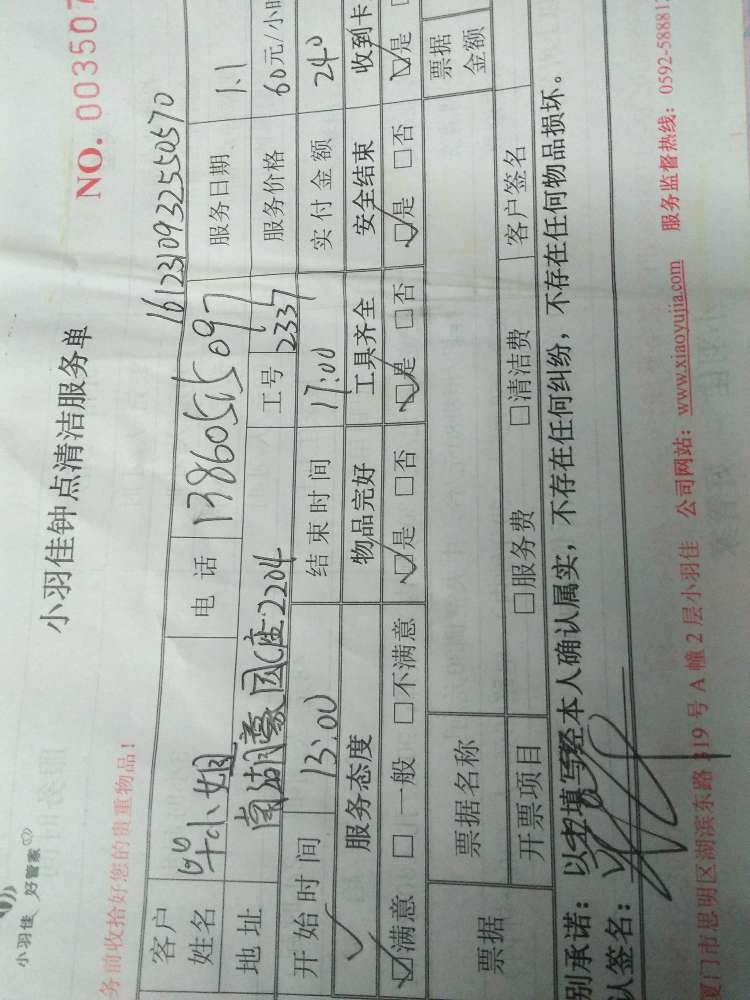 小羽佳 好管家
小羽佳钟点清洁服务单
NO. 003507
务前收拾好您的贵重物品!
1612310932550570
客户姓名 小姐 电话 13860515097 服务日期 1.1
地址 南湖豪园C座2204 工号 2337 服务价格 60元/小时
开始时间 13:00 结束时间 17:00 实付金额 240
服务态度 物品完好 工具齐全 安全结束 收到卡
☑满意 □一般 □不满意 ☑是 □否 ☑是 □否 ☑是 □否 ☑是
票据 票据名称 票据金额
开票项目 □服务费 □清洁费 客户签名
别承诺:以上填写经本人确认属实,不存在任何纠纷,不存在任何物品损坏。
认签名:
厦门市思明区湖滨东路319号A幢2层小羽佳 公司网站:www.xiaoyujia.com 服务监督热线:0592-588812